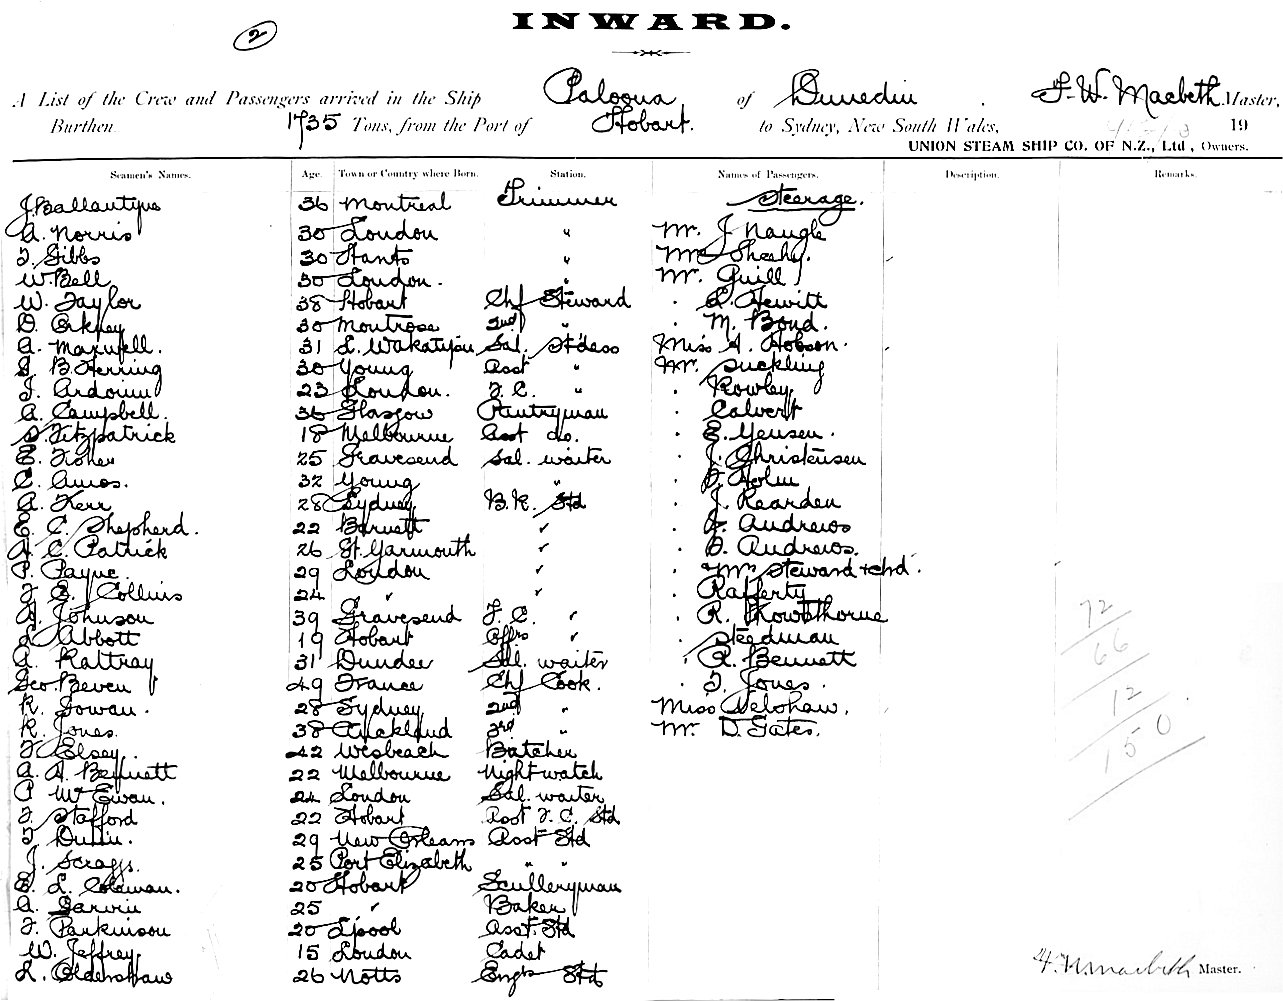 INWARD.
2
A List of the Crew and Passengers arrived in the Ship Paloona of Dunedin. F. W. Macbeth Master,
Burthen 1735 Tons, from the Port of Hobart. to Sydney, New South Wales, 19
UNION STEAM SHIP CO. OF N.Z., Ltd, Owners.
Seamen's Names. Age. Town or Country where Born. Station. Names of Passengers. Description. Remarks.
J. Ballantyne 36 Montreal Trimmer Steerage.
A. Norris 30 London " Mr. J Naugle
T. Gibbs 30 Hants " Mrs Sheehy.
W. Bell 30 London. " Mr. Guill
W. Taylor 38 Hobart Chf Steward . L. Hewitt
D. 30 Montrose 2nd " . M. Bond.
A. Maxwell. 31 L. Wakatipu Sal. Stdess Miss A. Hobson.
B. Herring 30 Young Asst " Mr. Suckling
J. Ardouin 23 London. F. C. " . Rowley
A. Campbell. 36 Glasgow Pantryman . Calvert
Fitzpatrick 18 Melbourne Asst do. . E. Yensen.
E. Fisher 25 Gravesend Sal. waiter . J. Christensen
C. Amos. 32 Young " . Holm
A. Kerr 28 Sydney B.R. Std . J. Rearden
E. C. Shepherd. 22 Barnett " . Andrews
A. C. Patrick 26 Gt. Yarmouth " . Andrews.
P. Payne. 29 London " . Mrs Steward + chd.
F. E. Collins 24 " " . Rafferty
A. Johnson 39 Gravesend F. C. " . R. Howthorne
L. Abbott 19 Hobart Offrs " . Steedman
A. Rattray 31 Dundee Sal. waiter . R. Bennett
Geo. Beven 49 France Chf Cook. . T. Jones.
R. Gowan. 28 Sydney 2nd " Miss Velshaw.
R. Jones. 38 Auckland 3rd " Mr. D. Gates.
F. Elsey. 42 Wisbeach Butcher
A. A. Bennett 22 Melbourne Nightwatch
P McEwan. 24 London Sal. waiter
F. Stafford 22 Hobart Asst F. C. Std
T. 29 New Orleans Asst Std
J. Scraggs. 25 Port Elizabeth " "
E. L. Coleman. 20 Hobart Sculleryman
A. Garvin 25 " Baker
F. Parkinson 20 L'pool Asst. Std
W. Jeffrey. 15 London Cadet
L. Oldershaw 26 Notts Engrs Std
72
66
12
150
F. W. Macbeth Master.